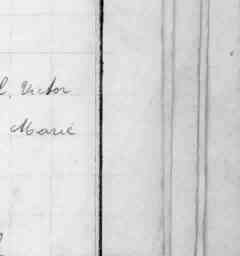 Victor
Marie